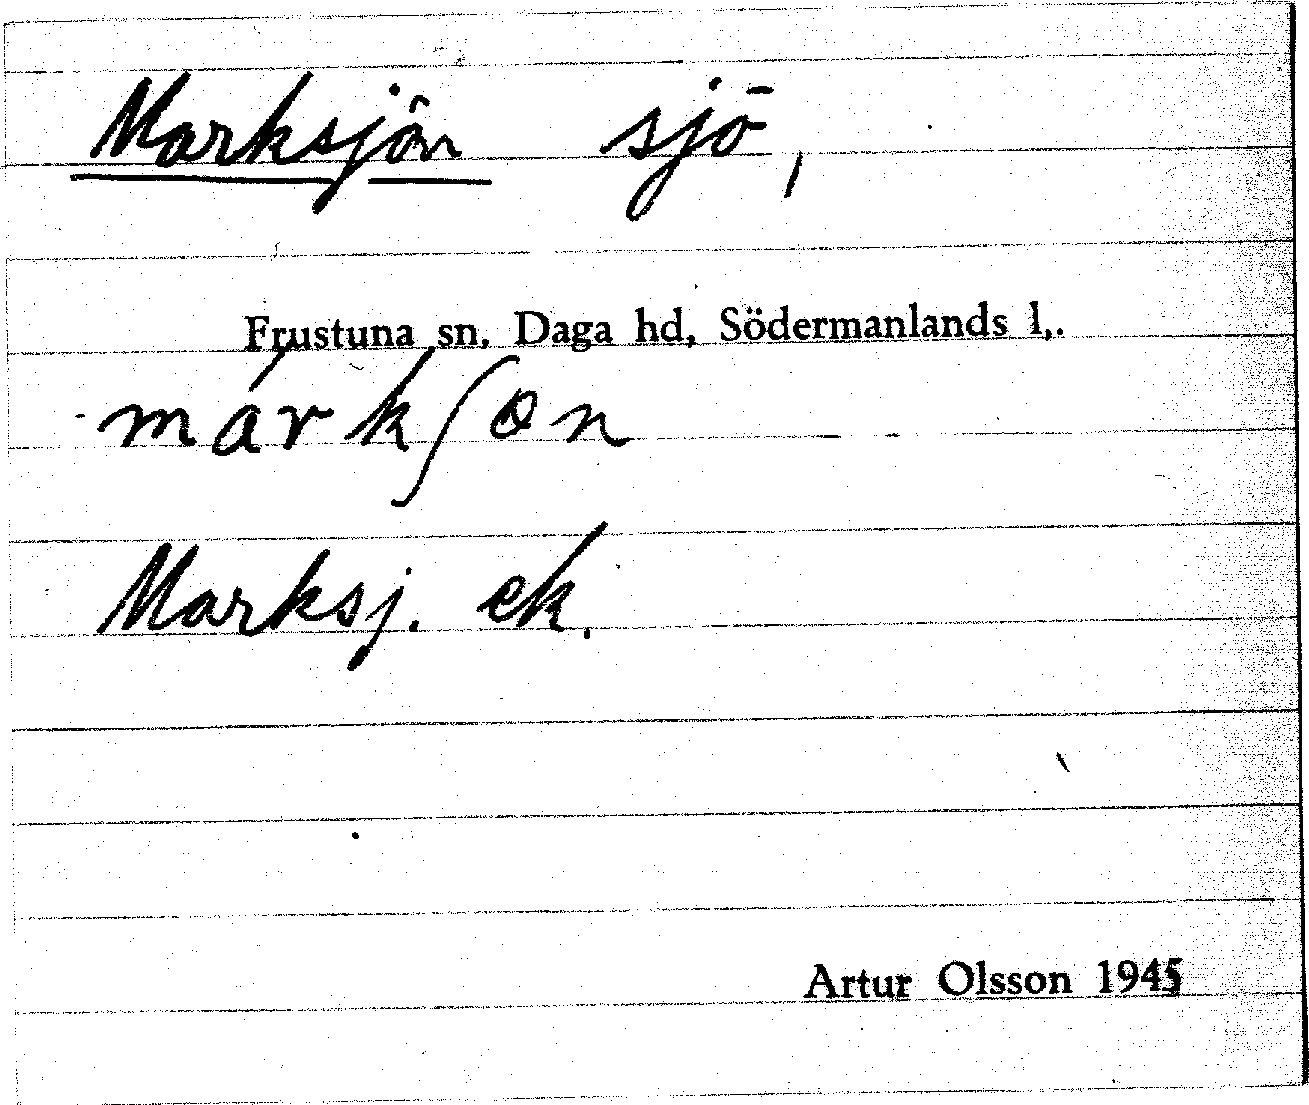 Marksjön sjö,
Frustuna sn, Daga hd, Södermanlands l,.
márkʃøn
Marksj. ek.
Artur Olsson 1945